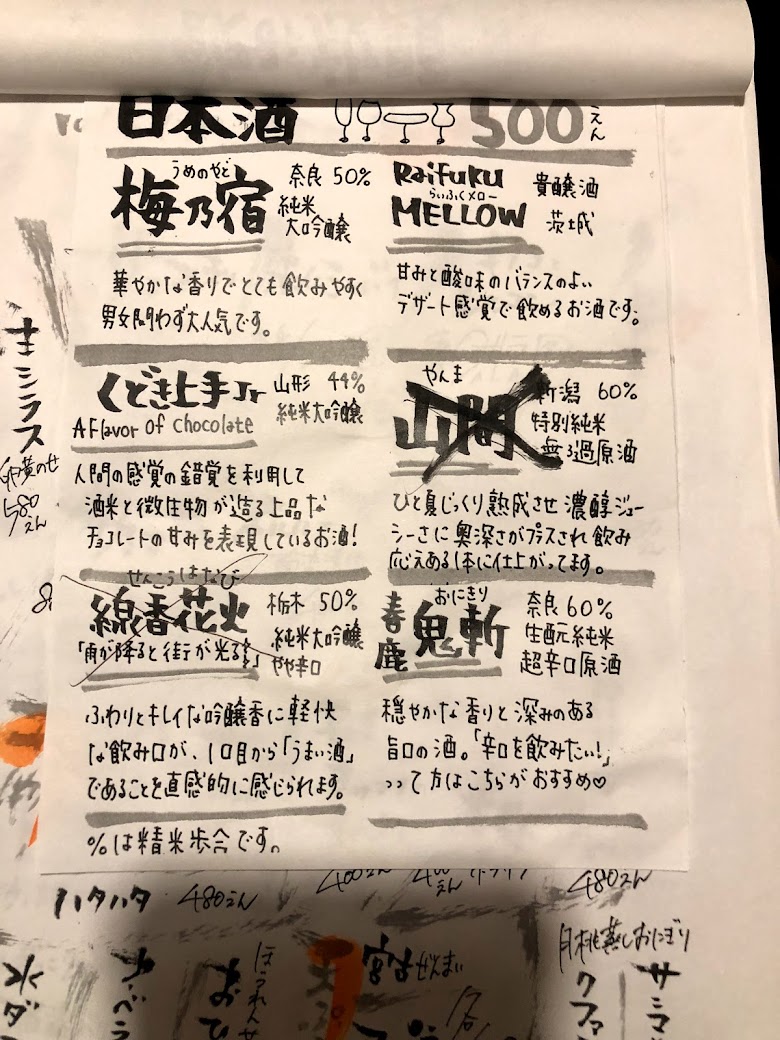 日本酒 500えん
うめのやど
梅乃宿
奈良 50%
純米
大吟醸
華やかな香りでとても飲みやすく
男女問わず大人気です。
RaiFuku
らいふくメロー
MELLOW
貴醸酒
茨城
甘みと酸味のバランスのよい
デザート感覚で飲めるお酒です。
くどき上手Jr
A Flavor of chocolate
山形 44%
純米大吟醸
人間の感覚の錯覚を利用して
酒米と微生物が造る上品な
チョコレートの甘みを表現しているお酒!
やんま
山間
新潟 60%
特別純米
無ろ過原酒
ひと夏じっくり熟成させ濃醇ジュー
シーさに奥深さがプラスされ飲み
応えある1本に仕上がってます。
せんこうはなび
線香花火
「雨が降ると街が光る」
栃木 50%
純米大吟醸
やや辛口
ふわりとキレイな吟醸香に軽快
な飲み口が、1口目から「うまい酒」
であることを直感的に感じられます。
おにきり
春鹿 鬼斬
奈良60%
生酛純米
超辛口原酒
穏やかな香りと深みのある
旨口の酒。「辛口を飲みたい!」
って方はこちらがおすすめ♡
%は精米歩合です。
キシラス
卵黄のせ
580えん
ハタハタ 480えん
400えん
480えん
月桃蒸しおにぎり